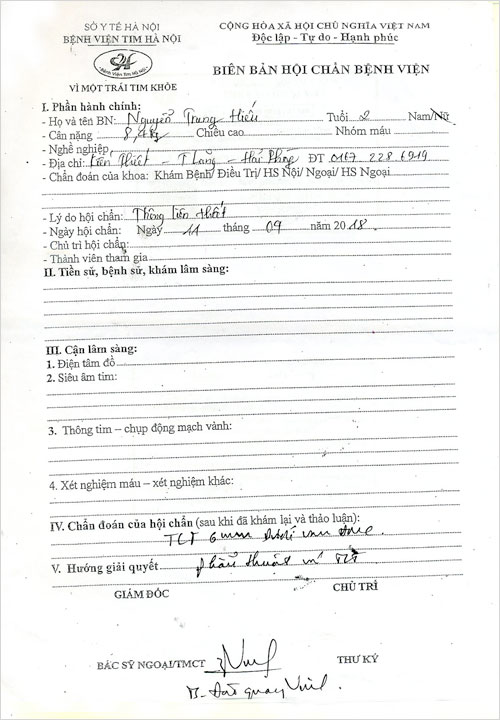 SỞ Y TẾ HÀ NỘI
BỆNH VIỆN TIM HÀ NỘI
Bệnh Viện Tim Hà Nội
VÌ MỘT TRÁI TIM KHỎE
CỘNG HÒA XÃ HỘI CHỦ NGHĨA VIỆT NAM
Độc lập - Tự do - Hạnh phúc
BIÊN BẢN HỘI CHẨN BỆNH VIỆN
I. Phần hành chính:
- Họ và tên BN: Nguyễn Trung Hiếu Tuổi 2 Nam/Nữ
- Cân nặng 8,4kg Chiều cao Nhóm máu
- Nghề nghiệp
- Địa chỉ: - Hải Phòng ĐT 0167 228 6919
- Chẩn đoán của khoa: Khám Bệnh/ Điều Trị/ HS Nội/ Ngoại/ HS Ngoại
- Lý do hội chẩn: Thông liên thất
- Ngày hội chẩn: Ngày 11 tháng 09 năm 2018.
- Chủ trì hội chẩn:
- Thành viên tham gia
II. Tiền sử, bệnh sử, khám lâm sàng:
III. Cận lâm sàng:
1. Điện tâm đồ
2. Siêu âm tim:
3. Thông tim – chụp động mạch vành:
4. Xét nghiệm máu – xét nghiệm khác:
IV. Chẩn đoán của hội chẩn (sau khi đã khám lại và thảo luận):
TLT 6mm
V. Hướng giải quyết phẫu thuật vá TLT
GIÁM ĐỐC CHỦ TRÌ
BÁC SỸ NGOẠI/TMCT THƯ KÝ